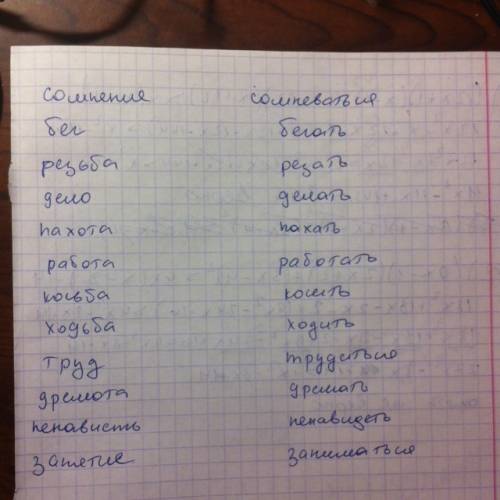 сомнение сомневаться
бег бегать
резьба резать
дело делать
пахота пахать
работа работать
косьба косить
ходьба ходить
труд трудиться
дремота дремать
ненависть ненавидеть
занятие заниматься